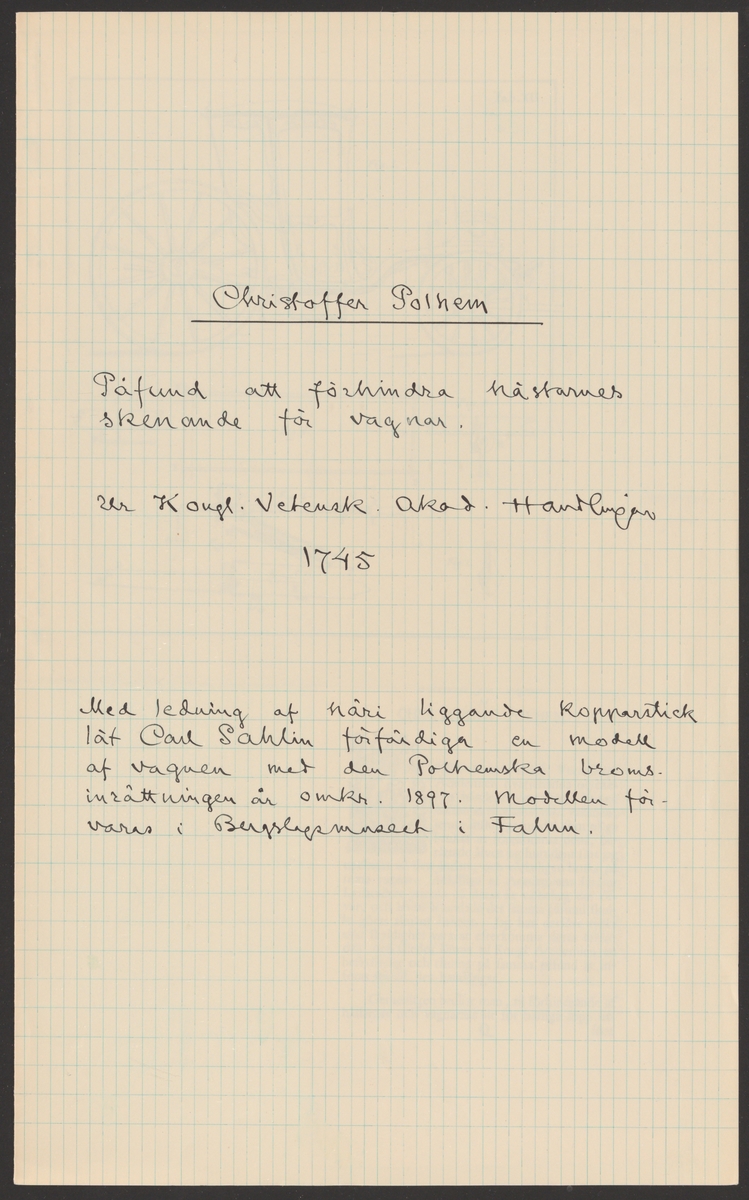 Christoffer Polhem
Påfund att förhindra hästarnes
skenande för vagnar.
Ur Kongl. Vetensk. Akad. Handlingar
1745
Med ledning af häri liggande kopparstick
lät Carl Sahlin förfärdiga en modell
af vagnen med den Polhemska broms-
inrättningen år omkr. 1897. Modellen för-
varas i Bergslagsmuseet i Falun.